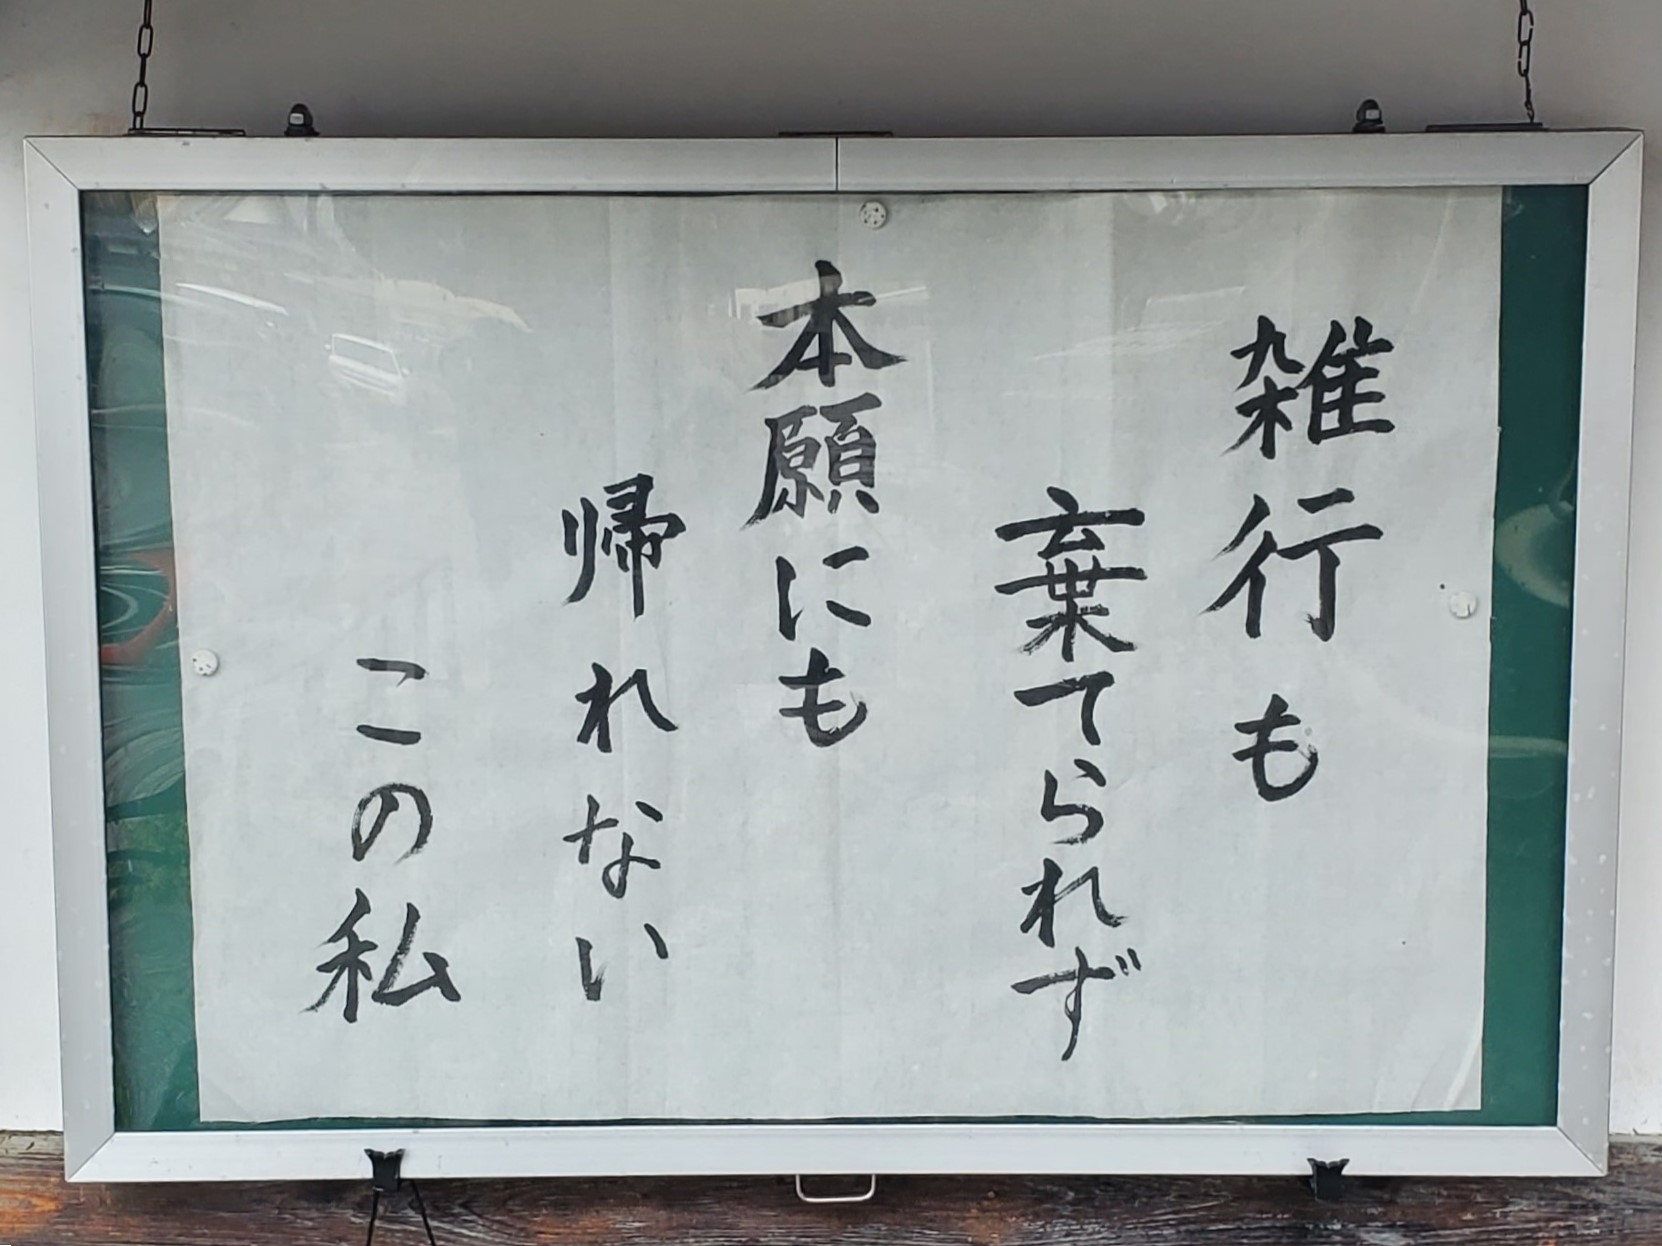 雑行も
棄てられず
本願にも
帰れない
この私